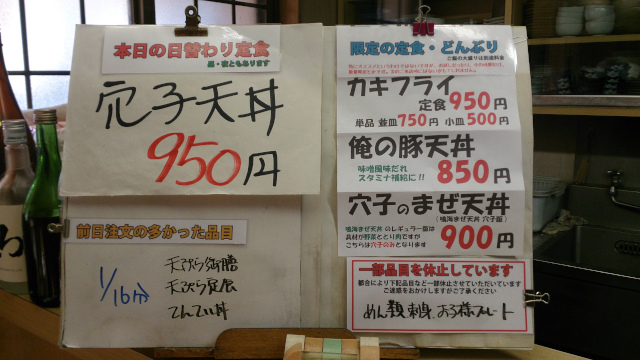 本日の日替わり定食
穴子天丼
950円
前日注文の多かった品目
1/16分
天ぷら御膳
天ぷら定食
てんてい丼
限定の定食・どんぶり
ご飯の大盛りは別途料金
カキフライ
定食950円
単品 並皿750円 小皿500円
俺の豚天丼
味噌風味だれ
スタミナ補給に!!
850円
穴子のまぜ天丼
(鳴海まぜ天丼 穴子版)
鳴海まぜ天丼 のレギュラー版は
具材が野菜ととり肉ですが
こちらは穴子のみとなります
900円
一部品目を休止しています
都合により下記品目など一部休止させていただいています
ご迷惑をおかけしますがご了承ください
めん類 刺身 お子様プレート